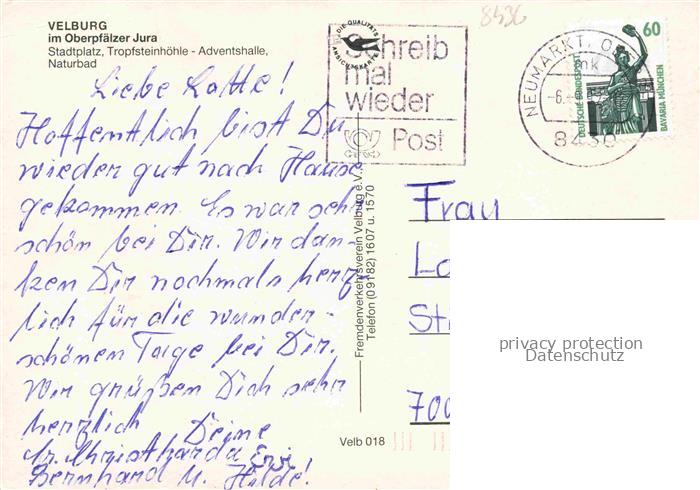 VELBURG
im Oberpfälzer Jura
Stadtplatz, Tropfsteinhöhle - Adventshalle,
Naturbad
8436
DIE QUALITÄTS
ANSICHTSKARTE
Schreib
mal
wieder
Post
NEUMARKT, O
mk
-6.
8430
60
DEUTSCHE BUNDESPOST
BAVARIA MÜNCHEN
Liebe Lotte!
Hoffentlich bist Du
wieder gut nach Hause
gekommen. Es war seh
schön bei Dir. Wir dan-
ken Dir nochmals herz-
lich für die wunder-
schönen Tage bei Dir.
Wir grüßen Dich sehr
herzlich Deine
Sr. Christharda
Bernhard u. Hilde!
Fremdenverkehrsverein Velburg e.V.,
Telefon (09182) 1607 u. 1570
Velb 018
Frau
Lo
St
700
privacy protection
Datenschutz